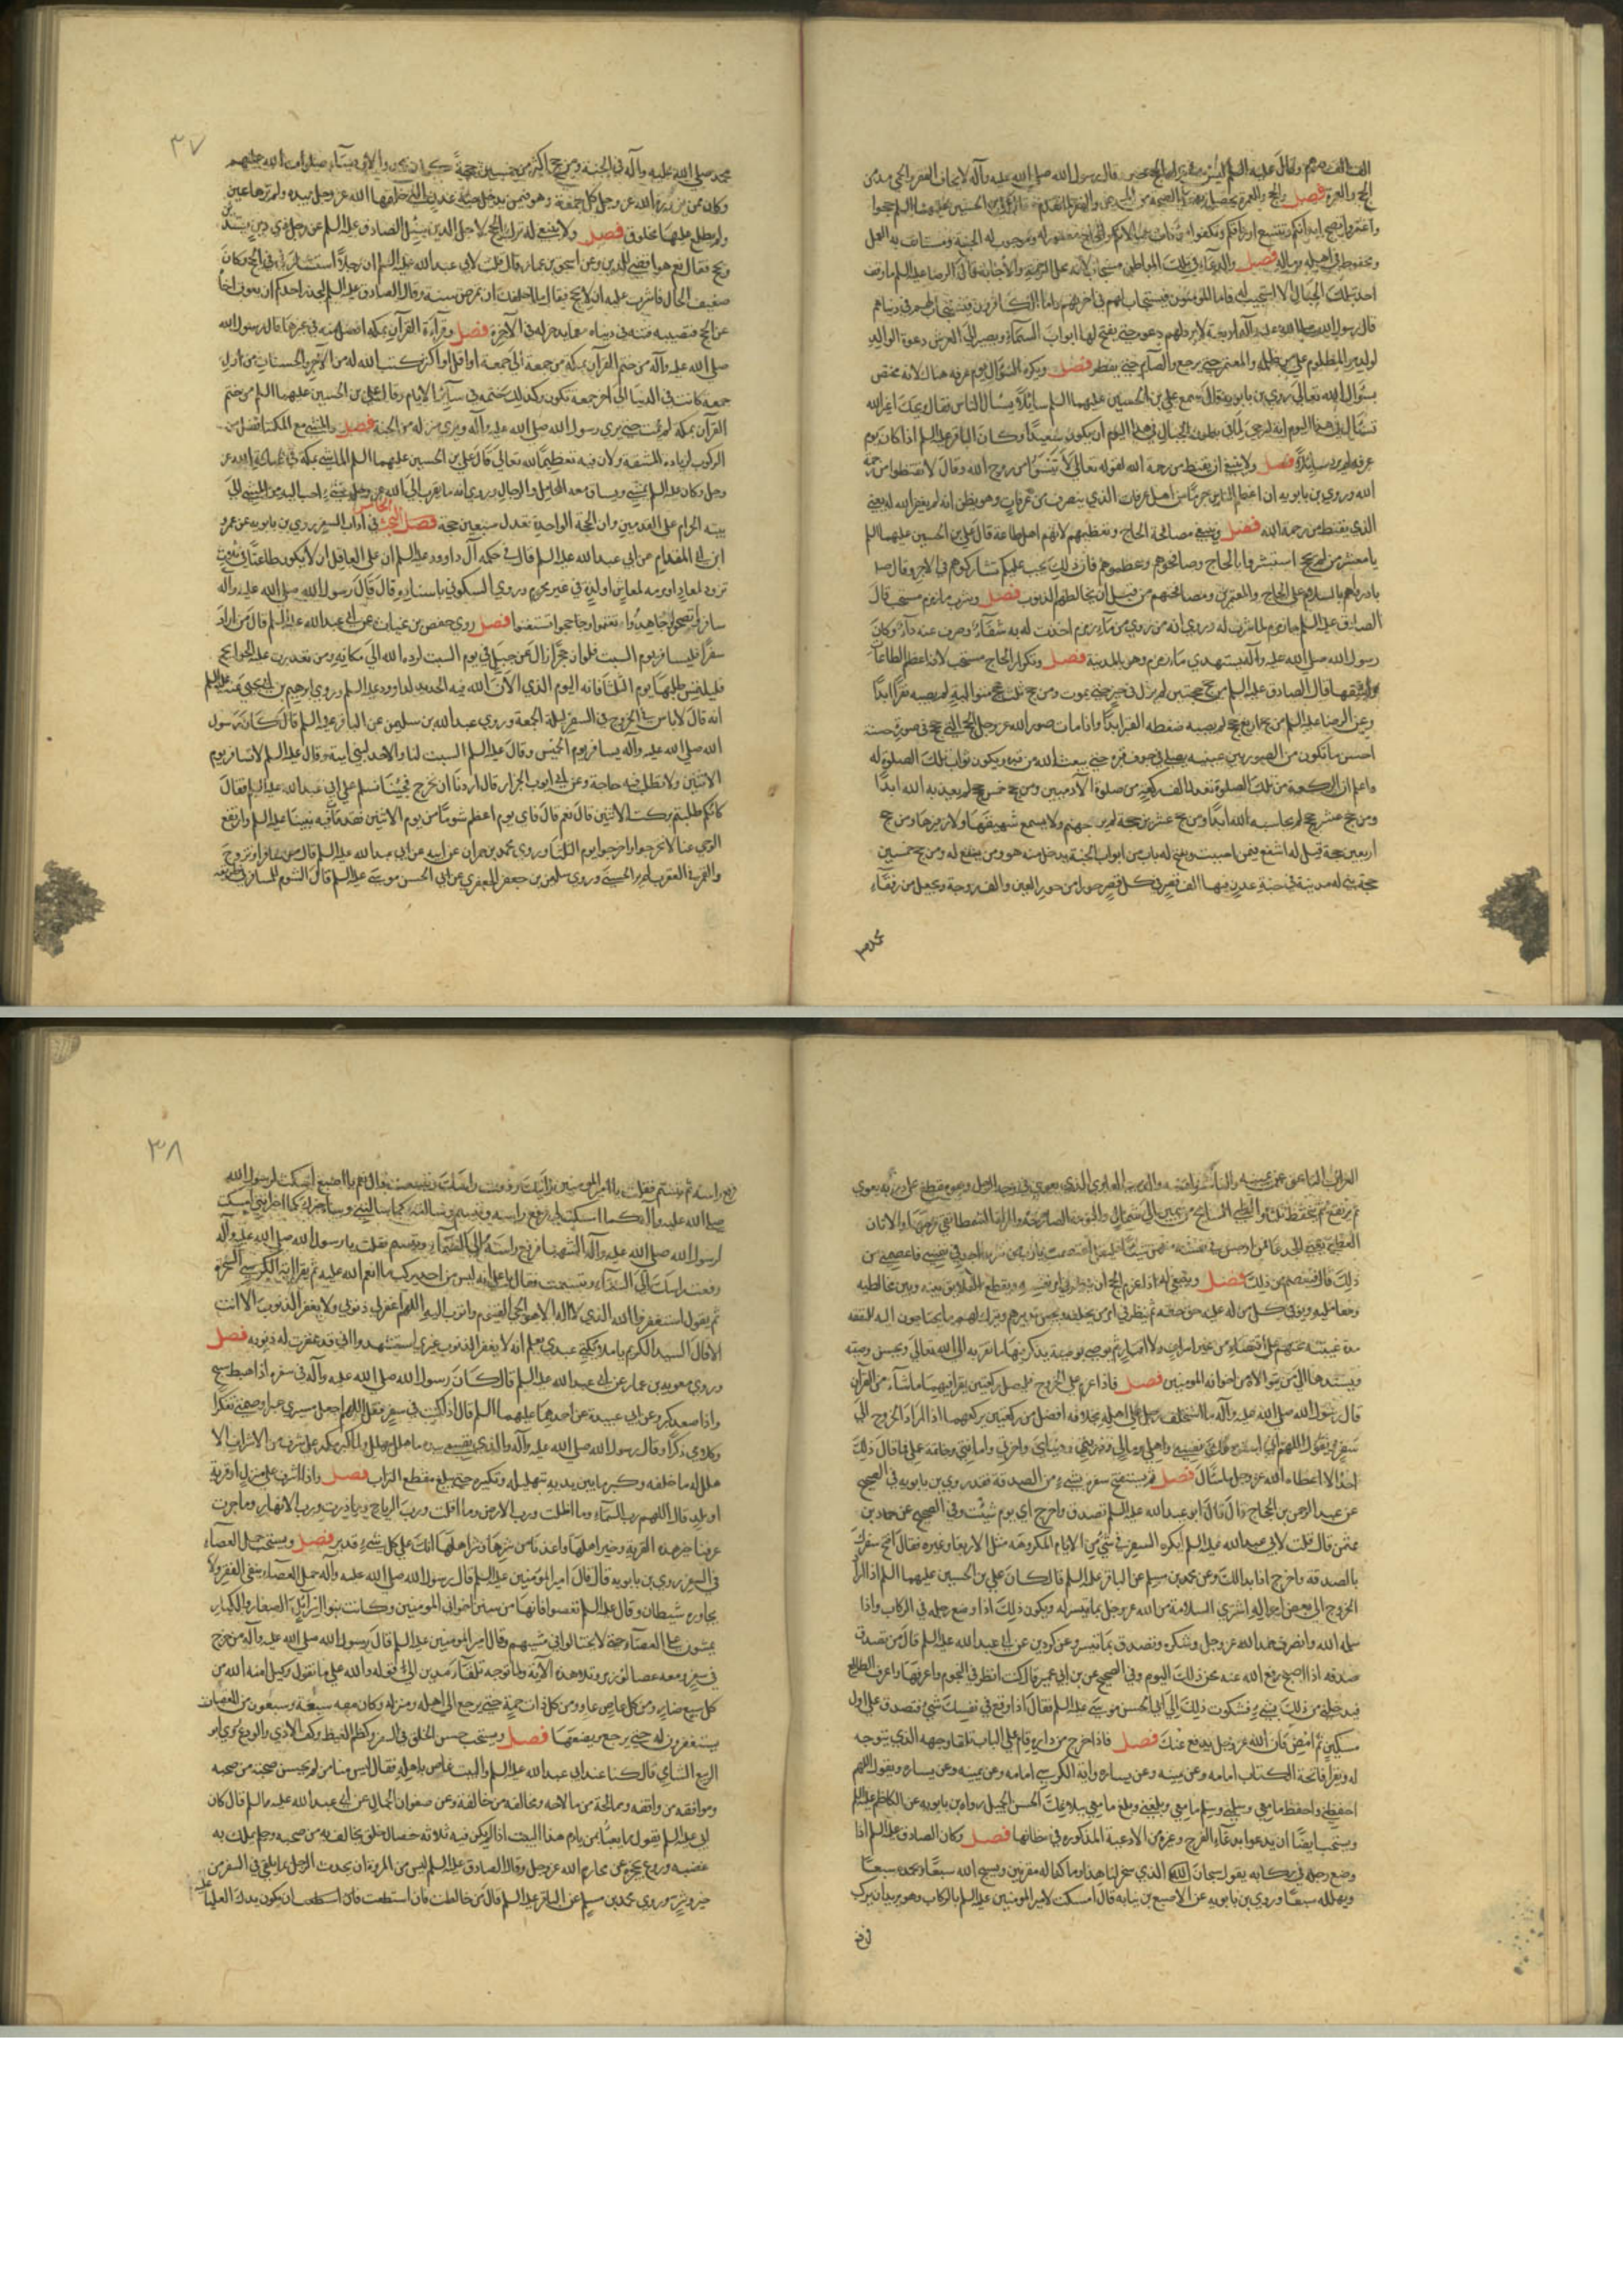 الف الف درهم وقال عليه السلم ليس في قال رسول الله صلى الله عليه وآله لا يحالف الفقر والحمى مدمن
الحج والعمرة فصل والحج والعمرة
ويحفظ في اهله وماله فصل والدعاء في تلك المواطن مستجاب لانه محل الرحمة والاجابة قال الرضا عليه السلم ما وقف
احد بتلك الجبال الا استجيب له فاما المؤمنون فيستجاب لهم في آخرتهم واما الكافرون فيستجاب لهم في دنياهم
قال رسول الله صلى الله عليه وآله اربعة لا يرد لهم دعوة حتى يفتح لها ابواب السماء ويصير الى العرش دعوة الوالد
لولده والمظلوم على من ظلمه والمعتمر حتى يرجع والصائم حتى يفطر فصل ويكره السؤال يوم عرفة هناك لانه مختص
بسؤال الله تعالى روى بن بابويه قال سمع علي بن الحسين عليهما السلم سائلا يسأل الناس فقال ويحك اغير الله
تسأل في هذا اليوم انه ليرجى لما في بطون الجبال في هذا اليوم ان يكون سعيدا وكان الباقر عليه السلم اذا كان يوم
عرفة لم يرد سائلا فصل ولا ينبغي ان يقنط من رحمة الله لقوله تعالى لا تيئسوا من روح الله وقال لا تقنطوا من رحمة
الله وروى بن بابويه ان اعظم الناس جرما من اهل عرفات الذي ينصرف من عرفات وهو يظن انه لم يغفر الله له يعني
الذي يقنط من رحمة الله فصل وينبغي مصافحة الحاج وتعظيمهم لانهم اهل طاعة قال علي بن الحسين عليهما السلم
يا معشر من لم يحج استبشروا بالحاج وصافحوهم وعظموهم فان ذلك يجب عليكم تشاركوهم في الاجر وقال
بادروا بالسلام على الحاج والمعتمرين ومصافحتهم من قبل ان يخالطهم الذنوب فصل وشرب ماء زمزم مستحب قال
الصادق عليه السلم ماء زمزم لما شرب له وروى انه من روي من ماء زمزم احدث له به شفاء وصرف عنه داء وكان
رسول الله صلى الله عليه وآله يستهدي ماء زمزم وهو بالمدينة فصل وتكرار الحاج مستحب لانه اعظم الطاعات
واشقها قال الصادق عليه السلم من حج حجتين لم يزل في خير حتى يموت ومن حج ثلث حج متوالية لم يصبه فقر ابدا
وعن الرضا عليه السلم من حج اربع حج لم يصبه ضغطة القبر ابدا واذا مات صور الله عز وجل الحج التي حج في صورة حسنة
احسن ما يكون من الصور بين عينيه يصلي في جوف قبره حتى يبعثه الله من قبره ويكون ثواب تلك الصلوة له
واعلم ان الركعة من تلك الصلوة تعدل الف ركعة من صلوة الآدميين ومن حج خمس حج لم يعذبه الله ابدا
ومن حج عشر حج لم يحاسبه الله ابدا ومن حج عشرين حجة لم ير جهنم ولا يسمع شهيقها ولا زفيرها ومن حج
اربعين حجة قيل له اشفع فيمن احببت ويفتح له باب من ابواب الجنة يدخل منه هو ومن يشفع له ومن حج خمسين
حجة بني له مدينة في جنة عدن فيها الف قصر في كل قصر حورا من حور العين والف زوجة ويجعل من رفقاء
محمد صـ
٣٧
محمد صلى الله عليه وآله في الجنة ومن حج اكثر من خمسين حجة كـ
وكان ممن يزوره الله عز وجل كل جمعة وهو فيمن يدخل جنة عدن التي خلقها الله عز وجل بيده ولم ترها عين
ولم يطلع عليها مخلوق فصل ولا ينبغي له ترك الحج لاجل الدين سئل الصادق عليه السلم عن رجل ذي دين
ويحج فقال نعم هو اقضى للدين وعن اسحق بن عمار قال قلت لابي عبد الله عليه السلم ان رجلا استشارني في الحج وكان
ضعيف الحال فاشرت عليه ان لا يحج فقال ما اخلقك ان تمرض سنة وقال الصادق عليه السلم ليحذر احدكم ان يعوق اخاه
عن الحج فتصيبه فتنة في دنياه مع ما يدخر له في الآخرة فصل وقراءة القرآن بمكة افضل منه في غيرها قال رسول الله
صلى الله عليه وآله من ختم القرآن بمكة من جمعة الى جمعة او اقل او اكثر كتب الله له من الاجر والحسنات من اول
جمعة كانت في الدنيا الى آخر جمعة تكون وكذلك ختمه في سائر الايام وقال علي بن الحسين عليهما السلم من ختم
القرآن بمكة لم يمت حتى يرى رسول الله صلى الله عليه وآله ويرى منزله من الجنة فصل والمشي مع المكنة افضل من
الركوب لزيادة المشقة ولان فيه تعظيما لله تعالى قال علي بن الحسين عليهما السلم
وجل وكان عليه السلم يمشي ويساق معه المحامل والرحال وروى انه ما تقرب الى الله عز وجل بشيء احب اليه من المشي الى
بيته الحرام على القدمين وان الحجة الواحدة تعدل سبعين حجة فصل البحث الخامس في آداب السفر روى بن بابويه عن عمرو
ابن ابي المقدام عن ابي عبد الله عليه السلم قال في حكمة آل داوود عليه السلم ان على العاقل ان لا يكون ظاعنا الا في ثلث
تزود لمعاد او مرمة لمعاش او لذة في غير محرم وروى السكوني باسناده قال قال رسول الله صلى الله عليه وآله
سافروا تصحوا وجاهدوا تغنموا وحجوا تستغنوا فصل روى حفص بن غياث عن ابي عبد الله عليه السلم قال من اراد
سفرا فليسافر يوم السبت فلو ان حجرا زال عن جبل في يوم السبت لرده الله الى مكانه ومن تعذرت عليه الحوائج
فليلتمس طلبها يوم الثلثا فانه اليوم الذي الان الله فيه الحديد لداوود عليه السلم وروى ابرهيم بن ابي يحيى عنه عليه السلم
انه قال لا باس في الخروج في السفر ليلة الجمعة وروى عبد الله بن سليمن عن الباقر عليه السلم قال كان رسول
الله صلى الله عليه وآله يسافر يوم الخميس وقال عليه السلم السبت لنا والاحد لبني امية وقال عليه السلم لا تسافر يوم
الاثنين ولا تطلب فيه حاجة وعن ابي ايوب الخزاز قال اردنا ان نخرج فجئنا نسلم على ابي عبد الله عليه السلم فقال
كانكم طلبتم بركة الاثنين قال نعم قال فاي يوم اعظم شوما من يوم الاثنين فقدنا فيه نبينا عليه السلم وارتفع
الوحي عنا لا تخرجوا واخرجوا يوم الثلثا وروى محمد بن حمران عن ابيه عن ابي عبد الله عليه السلم قال من سافر او تزوج
والقمر في العقرب لم ير الحسنى وروى سليمن بن جعفر الجعفري عن ابي الحسن موسى عليه السلم قال الشوم للمسافر في طريقه
ذلك قال فيعصم من ذلك فصل وينبغي له اذا عزم الحج ان ينظر في امر نفسه ويقطع العلايق بينه وبين مخالطيه
ومعامليه ويوفي كل من له عليه حق حقه ثم ينظر في امر من يخلفه ويحسن تدبيرهم ويترك لهم ما يحتاجون اليه للنفقة
مدة غيبته عنهم على اقتصاد من غير اسراف ولا اقتار ثم يوصي بوصية يذكر فيها ما يقربه الى الله تعالى ويحسن وصيته
ويسندها الى من يثق به من اخوانه المؤمنين فصل فاذا عزم على الخروج فليصل ركعتين يقرأ فيهما ما شاء من القرآن
قال رسول الله صلى الله عليه وآله ما استخلف رجل على اهله بخلافة افضل من ركعتين يركعهما اذا اراد الخروج الى
سفر ويقول اللهم اني استودعك نفسي واهلي ومالي وذريتي ودنياي وآخرتي وامانتي وخاتمة عملي فما قال ذلك
احد الا اعطاه الله عز وجل ما سأل فصل ثم يستفتح سفره بشيء من الصدقة فقد روى بن بابويه في الصحيح
عن عبد الرحمن بن الحجاج قال قال ابو عبد الله عليه السلم تصدق واخرج اي يوم شئت وفي الصحيح عن حماد بن
عثمن قال قلت لابي عبد الله عليه السلم ايكره السفر في شيء من الايام المكروهة مثل الاربعا وغيره فقال افتتح سفرك
بالصدقة واخرج اذا بدا لك وعن محمد بن مسلم عن الباقر عليه السلم قال كان علي بن الحسين عليهما السلم اذا اراد
الخروج الى بعض امواله اشترى السلامة من الله عز وجل بما تيسر له ويكون ذلك اذا وضع رجله في الركاب واذا
سلمه الله وانصرف حمد الله عز وجل وشكره وتصدق بما تيسر وعن كردين عن ابي عبد الله عليه السلم قال من تصدق
صدقة اذا اصبح رفع الله عنه نحس ذلك اليوم وفي الصحيح عن بن ابي عمير قال كنت انظر في النجوم واعرفها واعرف الطالع
فيدخلني من ذلك شيء فشكوت ذلك الى ابي الحسن موسى عليه السلم فقال اذا وقع في نفسك شيء فتصدق على اول
مسكين ثم امض فان الله عز وجل يدفع عنك فصل فاذا خرج من داره قام على الباب تلقاء وجهه الذي يتوجه
له ويقرأ فاتحة الكتاب امامه وعن يمينه وعن يساره وآية الكرسي امامه وعن يمينه وعن يساره ويقول اللهم
احفظني واحفظ ما معي وسلمني وسلم ما معي وبلغني وبلغ ما معي ببلاغك الحسن الجميل رواه بن بابويه عن الكاظم عليه السلم
ويستحب ايضا ان يدعوا بدعاء الفرج وغيره من الادعية المذكورة في مظانها فصل وكان الصادق عليه السلم اذا
وضع رجله في ركابه يقول سبحان الله الذي سخر لنا هذا وما كنا له مقرنين ويسبح الله سبعا ويحمده سبعا
ويهلله سبعا وروى بن بابويه عن الاصبغ بن نباتة قال امسكت لامير المومنين عليه السلم بالركاب وهو يريد ان يركب
فرفع
٣٨
فرفع راسه ثم تبسم فقلت يا امير المومنين رايتك رفعت راسك وتبسمت قال نعم يا اصبغ امسكت لرسول الله
صلى الله عليه وآله كما امسكت لي فرفع راسه وتبسم وسالته كما سالتني وساخبرك كما اخبرني امسكت
لرسول الله صلى الله عليه وآله الشهباء فرفع راسه الى السماء وتبسم فقلت يا رسول الله صلى الله عليه وآله
رفعت راسك الى السماء وتبسمت فقال يا علي انه ليس من احد يركب ما انعم الله عليه ثم يقرا آية الكرسي السخرة
ثم يقول استغفر الله الذي لا اله الا هو الحي القيوم واتوب اليه اللهم اغفر لي ذنوبي ولا يغفر الذنوب الا انت
الا قال السيد الكريم يا ملائكتي عبدي يعلم انه لا يغفر الذنوب غيري اشهدوا اني قد غفرت له ذنوبه فصل
وروى معوية بن عمار عن ابي عبد الله عليه السلم قال كان رسول الله صلى الله عليه وآله في سفره اذا هبط سبح
واذا صعد كبر وعن ابي عبيدة عن احدهما عليهما السلم قال اذا كنت في سفر فقل اللهم اجعل مسيري عبرا وصمتي تفكرا
وكلامي ذكرا وقال رسول الله صلى الله عليه وآله والذي نفسي بيده ما هلل مهلل ولا كبر مكبر على شرف من الاشراف الا
هلل له ما خلفه وكبر ما بين يديه بتهليله وتكبيره حتى يبلغ مقطع التراب فصل واذا اشرف على منزل او قرية
او بلد قال اللهم رب السماء وما اظلت ورب الارض وما اقلت ورب الرياح وما ذرت ورب الانهار وما جرت
عرفنا خير هذه القرية وخير اهلها واعذنا من شرها وشر اهلها انك على كل شيء قدير فصل ويستحب حمل العصاء
في السفر روى بن بابويه قال قال امير المؤمنين عليه السلم قال رسول الله صلى الله عليه وآله حمل العصاء ينفي الفقر ولا
يجاوره شيطان وقال عليه السلم تعصوا فانها من سنن اخواني المومنين وكانت بنوا اسرائيل الصغار والكبار
يمشون على العصاء حتى لا يختالوا في مشيهم وقال امير المومنين عليه السلم قال رسول الله صلى الله عليه وآله من خرج
في سفر ومعه عصا لوز مر وتلا هذه الآية ولما توجه تلقاء مدين الى قوله والله على ما نقول وكيل امنه الله من
كل سبع ضار ومن كل لص عاد ومن كل ذات حمة حتى يرجع الى اهله ومنزله وكان معه سبعة وسبعون من المعقبات
يستغفرون له حتى يرجع ويضعها فصل ويستحب حسن الخلق في السفر وكظم الغيظ وكف الاذى والورع روى ابو
الربيع الشامي قال كنا عند ابي عبد الله عليه السلم والبيت غاص باهله فقال ليس منا من لم يحسن صحبة من صحبه
وموافقة من وافقه وممالحة من مالحه ومخالفة من خالفه وعن صفوان الجمال عن ابي عبد الله عليه السلم قال كان
ابي عليه السلم يقول ما يعبأ بمن يؤم هذا البيت اذا لم يكن فيه ثلاثة خصال خلق يخالق به من صحبه وحلم يملك به
غضبه وورع يحجزه عن محارم الله عز وجل وقال الصادق عليه السلم ليس من المروة ان يحدث الرجل بما يلقى في السفر من
خير وشر وروى محمد بن مسلم عن الباقر عليه السلم قال من خالطت فان استطعت ان يكون يدك العليا عليه